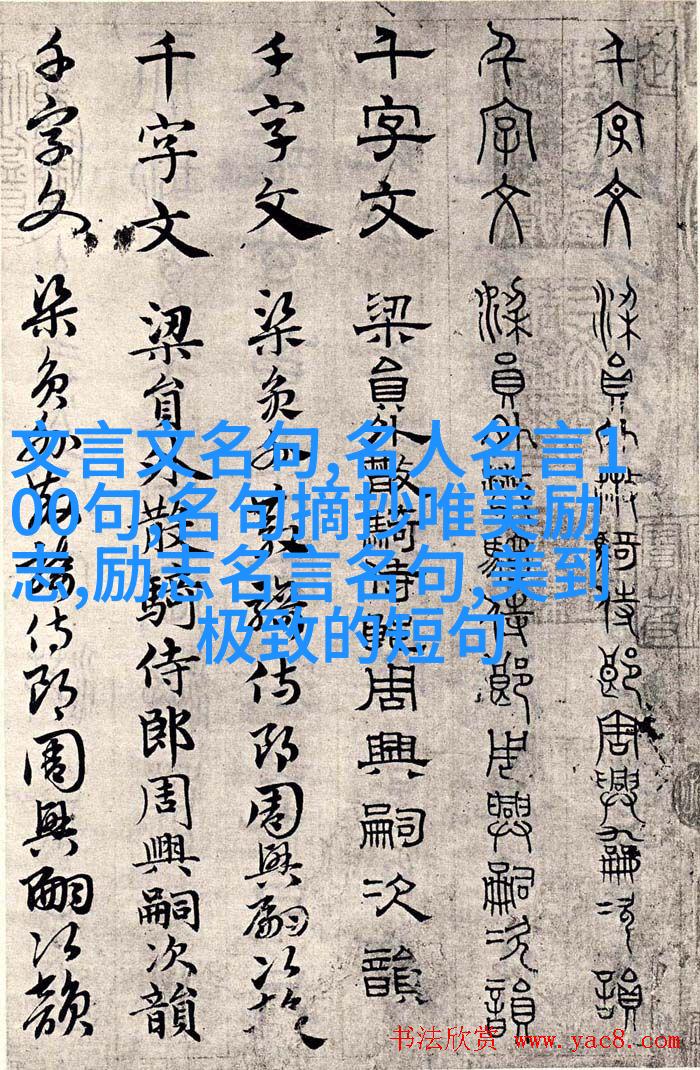 千字文 梁員外散騎侍郎周興嗣次韻
千字文 梁員外散騎侍郎周興嗣次韻
千字文 梁員外散騎侍郎周興嗣次韻
千字文 梁員外散騎侍郎周興嗣次韻
千字文 梁員外散騎侍郎周興嗣次韻
千字文 梁員外散騎侍郎周興嗣次韻
文言文名句,名人名言1
00句,名句摘抄唯美励
志,励志名言名句,美到
极致的短句
书法欣赏 www.yac8.com